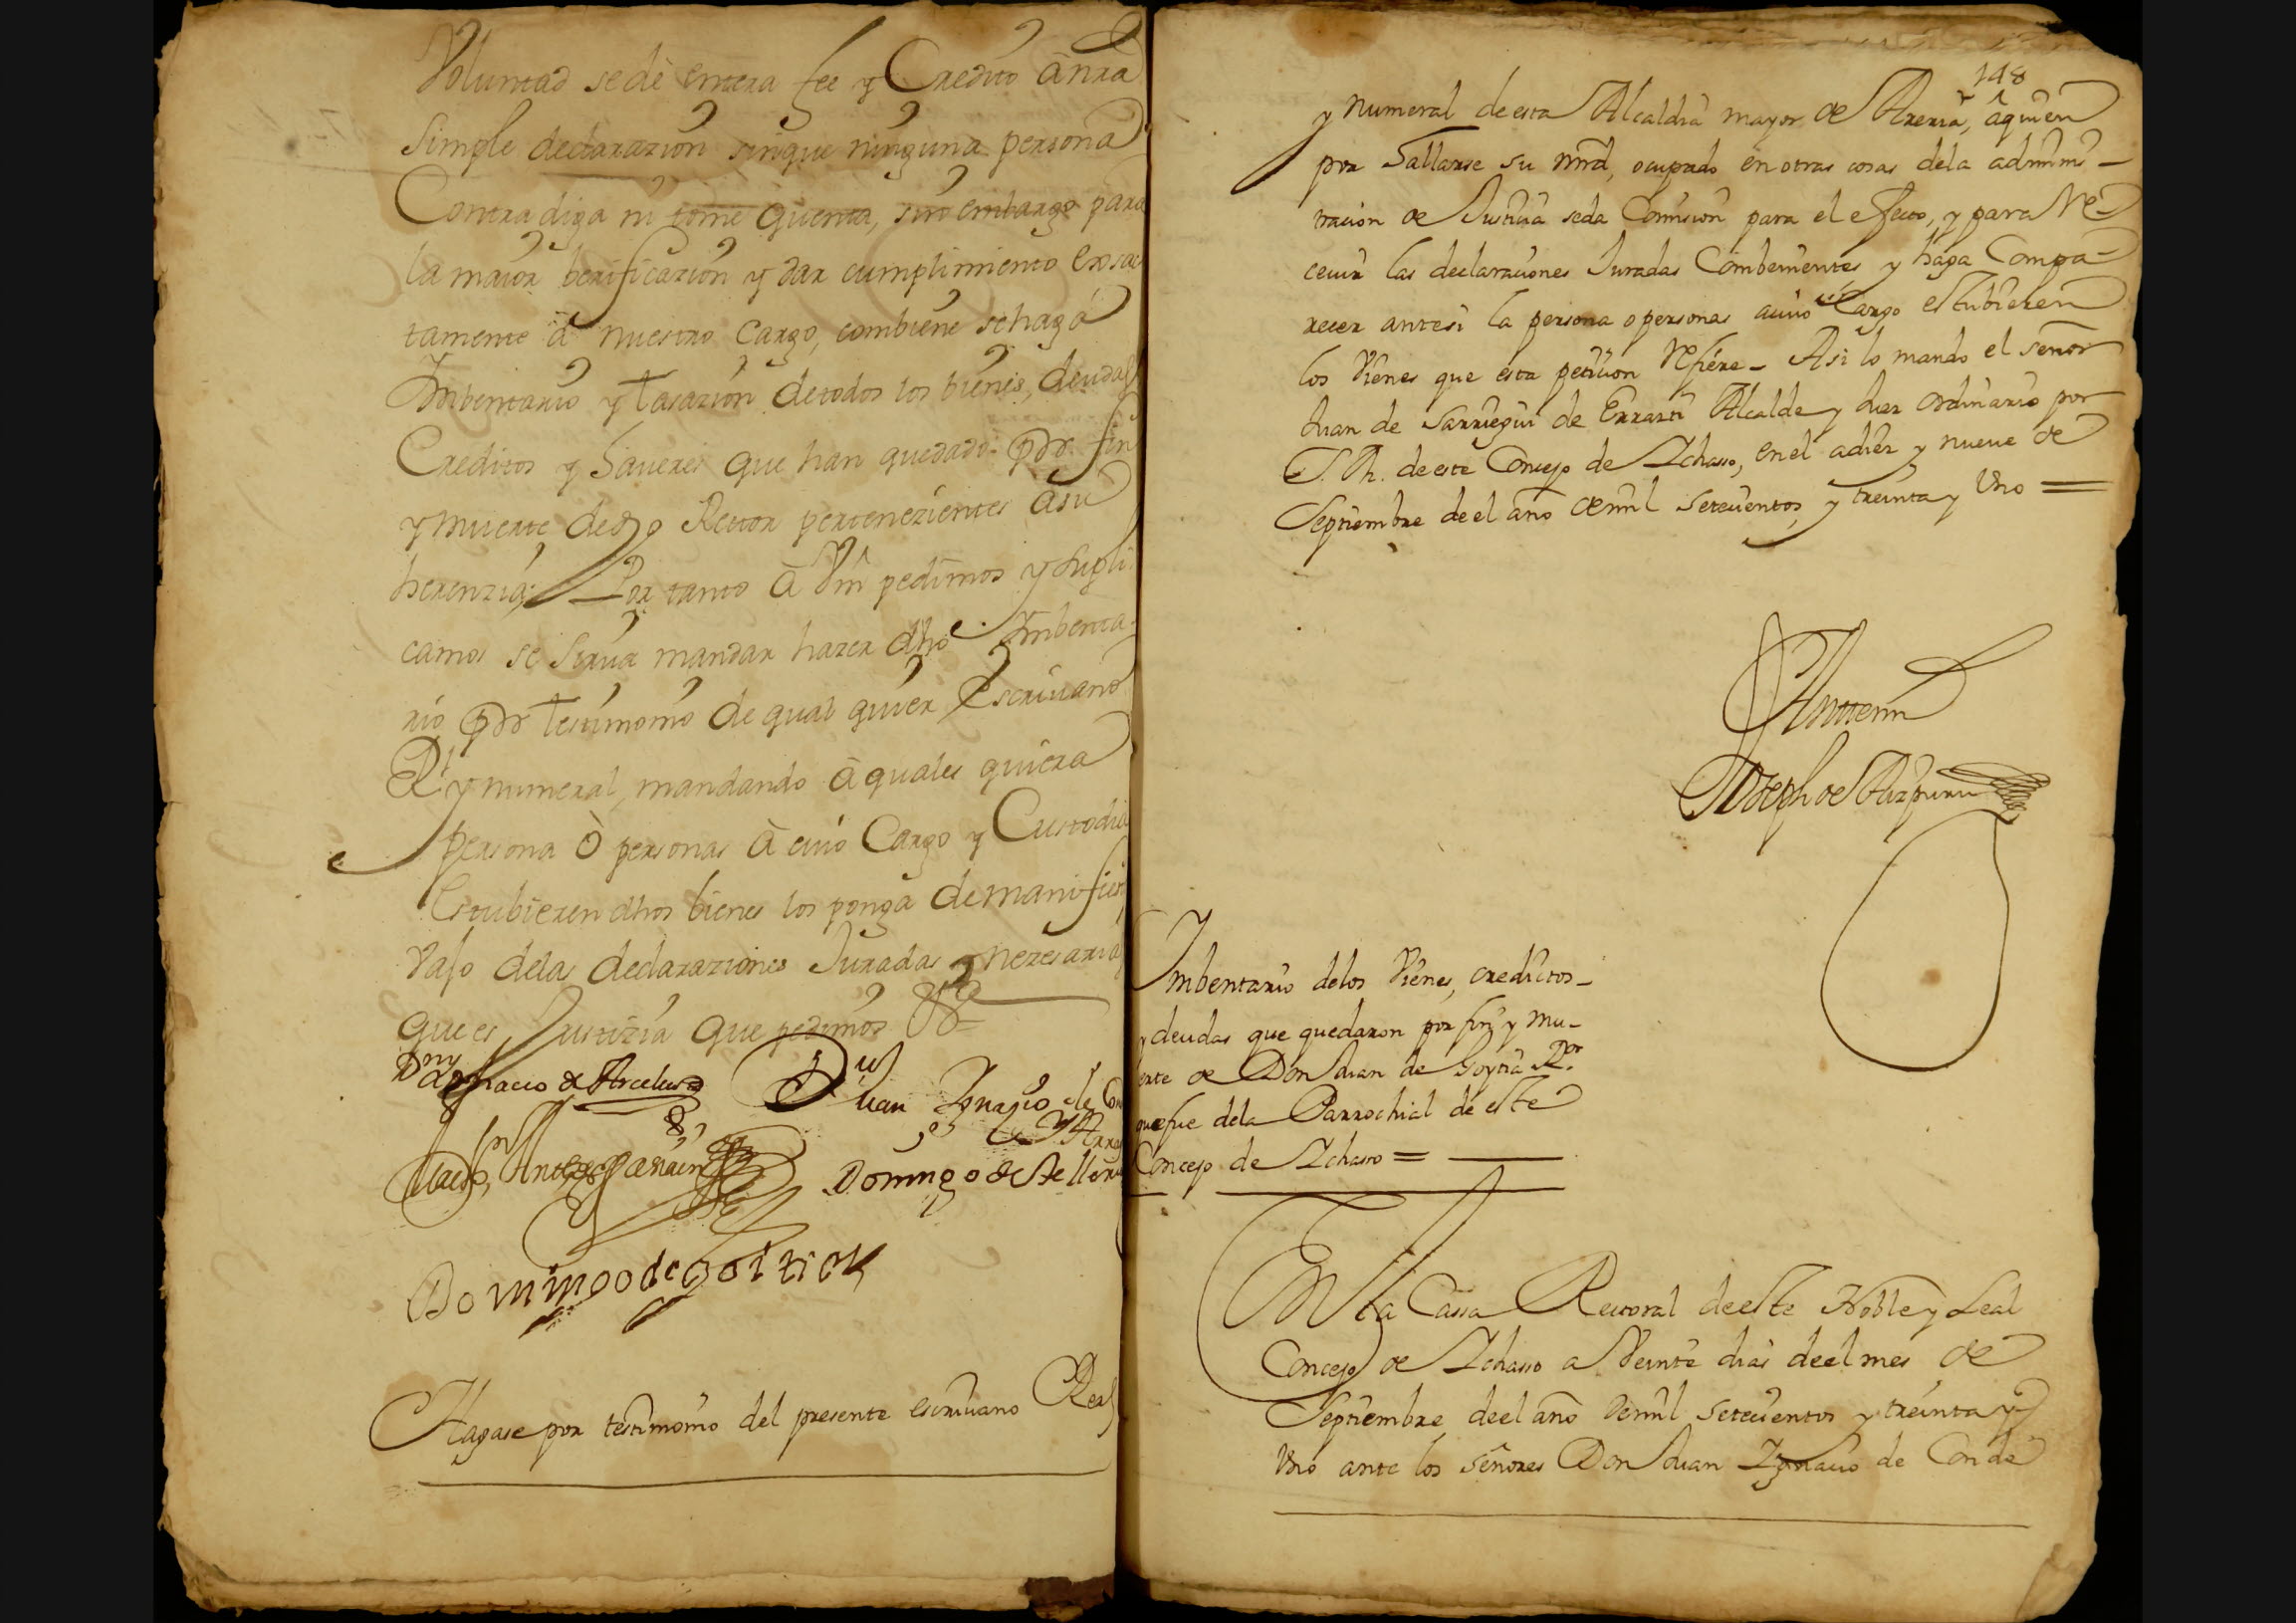 Voluntad se dè entera fee y Credito à nra
Simple declarazion sinque ninguna persona
Contradiga ni tome quenta, sino embargo para
la maior berificazion y dar cumplimiento exsac
tamente à nuestro cargo, combiene se haga
Imbentario y tasazion de todos los bienes, deudas
Creditos y haueres que han quedado por fin
y muerte de dho Rettor pertenezientes à su
herenzia; Por tanto à Vm pedimos y supli
camos se sirua mandar hazer dho Imbenta-
rio por testimonio de qual quier Escriuano
Rl y numeral, mandando à quales quiera
persona ò personas à cuio Cargo y Custodia
Estubieren dhos bienes los ponga de manifies
vajo de las declaraziones Juradas y nezesarias
que es Justizia que pedimos &
Dn Ignacio de Arcelus
Dn Juan Ignazio de Con
Domingo de Telleria
Domingo de goitia
Hagase por testimonio del presente escriuano Real
148
y numeral de esta Alcaldia mayor de Areria, â quien
por hallarse su mrd, ocupado en otras cosas dela adminis-
tracion de Justicia se da Comision para el efecto, y para Re-
ceuir las declaraciones Juradas Combenientes y haga Compa-
recer antesi la persona o personas a cuio Cargo estubieren
los Vienes que esta peticion Refiere- Asi lo mando el señor
Juan de Sarriegui de Errarti Alcalde y Juez ordinario por
S. M. de este Concejo de Ichasso, en el a diez y nueue de
Septiembre de el año de mil setecientos, y treinta y Vno =
Antte mi
Joseph de Aizpuru
Imbentario delos Vienes, credictos-
y deudas que quedaron por fin y mu-
erte de Don Juan de Goytia Ror
que fue dela Parrochial de este
Concejo de Ichasso =
En la Cassa Rectoral de este Noble y Leal
Concejo de Ichasso a Veinte dias de el mes de
Septiembre de el año de mil setecientos y treinta y
Vno ante los señores Don Juan Ignacio de Conde